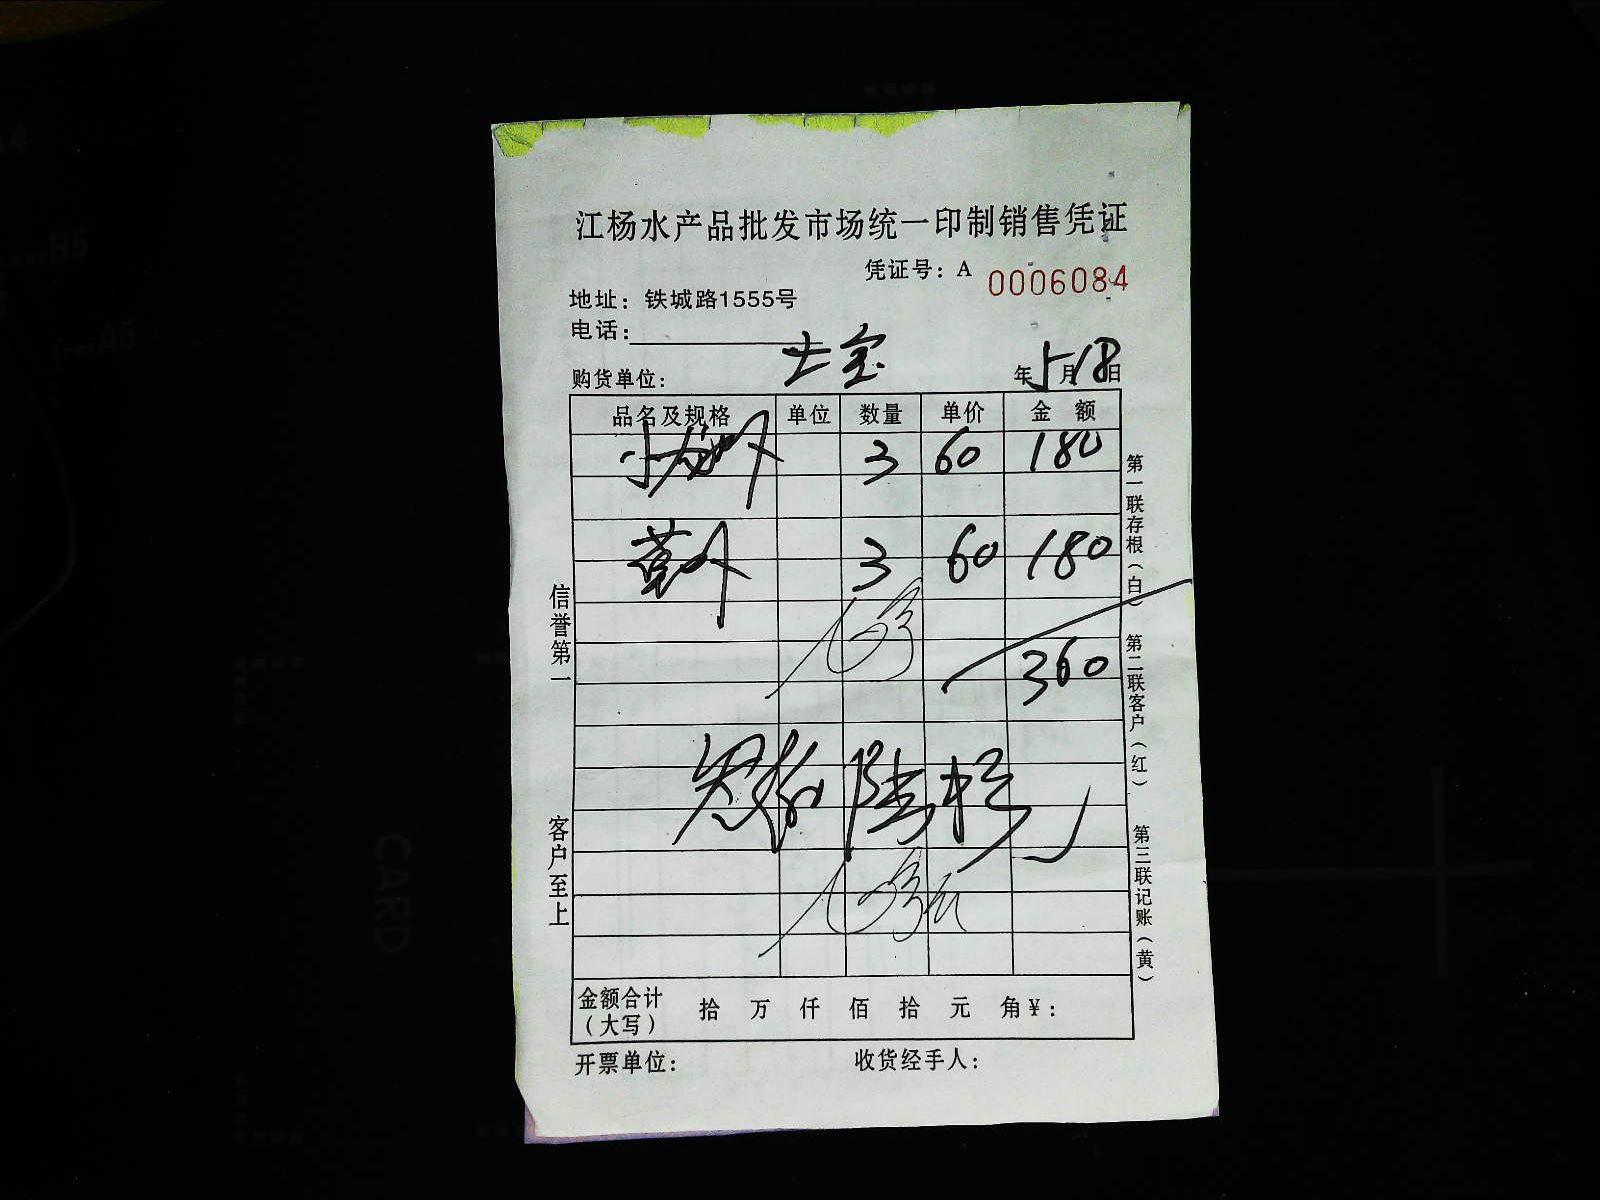 江杨水产品批发市场统一印制销售凭证
凭证号：A 0006084
地址：铁城路1555号
电话：
购货单位： 士宝 年5月18日
品名及规格 单位 数量 单价 金 额
小 3 60 180
3 60 180
360
陆拾
金额合计（大写） 拾 万 仟 佰 拾 元 角¥：
开票单位： 收货经手人：
信誉第一 客户至上
第一联存根（白） 第二联客户（红） 第三联记账（黄）
A4
B5
A5
CARD